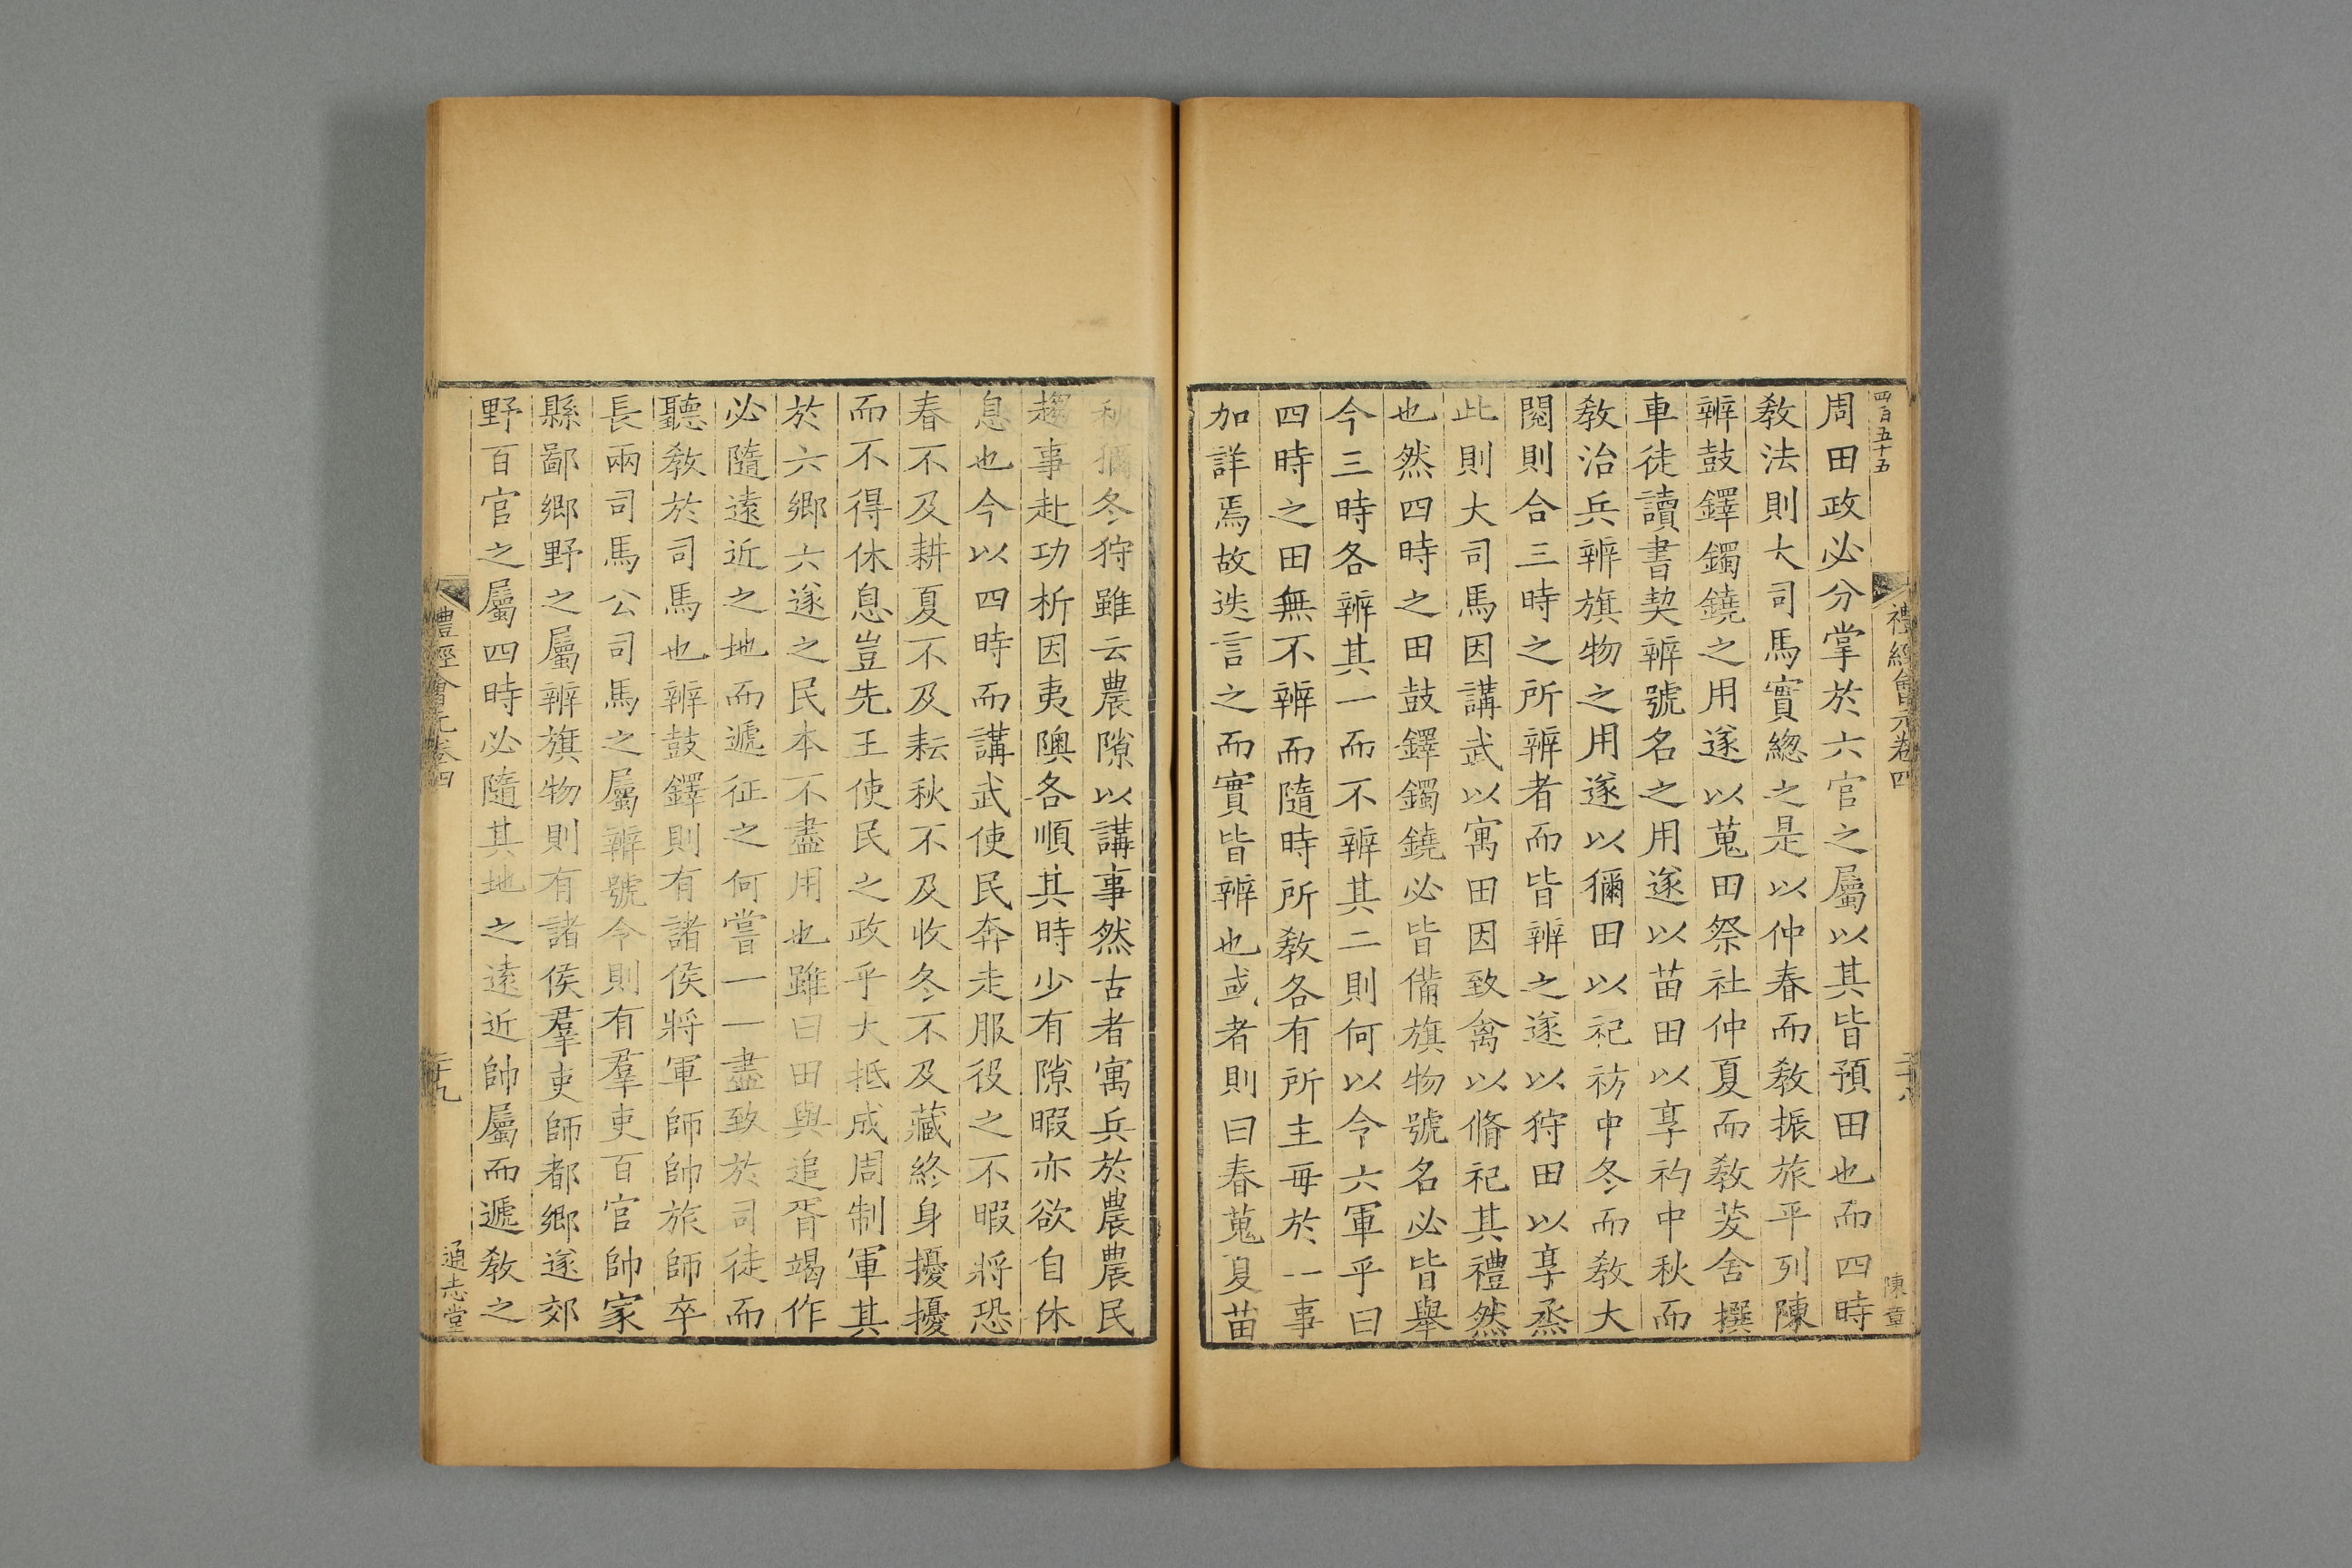 四百五十五
禮經會元卷四
二十八
陳章
周田政必分掌於六官之屬以其皆預田也而四時
敎法則大司馬實緫之是以仲春而敎振旅平列陳
辨鼓鐸鐲鐃之用遂以蒐田祭社仲夏而敎茇舍撰
車徒讀書契辨號名之用遂以苗田以享礿中秋而
敎治兵辨旗物之用遂以獮田以祀祊中冬而敎大
閱則合三時之所辨者而皆辨之遂以狩田以享烝
此則大司馬因講武以寓田因致禽以脩祀其禮然
也然四時之田鼓鐸鐲鐃必皆備旗物號名必皆舉
今三時各辨其一而不辨其二則何以令六軍乎曰
四時之田無不辨而隨時所敎各有所主毎於一事
加詳焉故迭言之而實皆辨也或者則曰春蒐夏苗
秋獮冬狩雖云農隙以講事然古者寓兵於農農民
趨事赴功析因夷隩各順其時少有隙暇亦欲自休
息也今以四時而講武使民奔走服役之不暇將恐
春不及耕夏不及耘秋不及收冬不及藏終身擾擾
而不得休息豈先王使民之政乎大抵成周制軍其
於六鄉六遂之民本不盡用也雖曰田與追胥竭作
必隨遠近之地而遞征之何嘗一一盡致於司徒而
聽敎於司馬也辨鼓鐸則有諸侯將軍師帥旅師卒
長兩司馬公司馬之屬辨號令則有羣吏百官帥家
縣鄙鄉野之屬辨旗物則有諸侯羣吏師都鄉遂郊
野百官之屬四時必隨其地之遠近帥屬而遞敎之
禮經會元卷四
二十九
通志堂